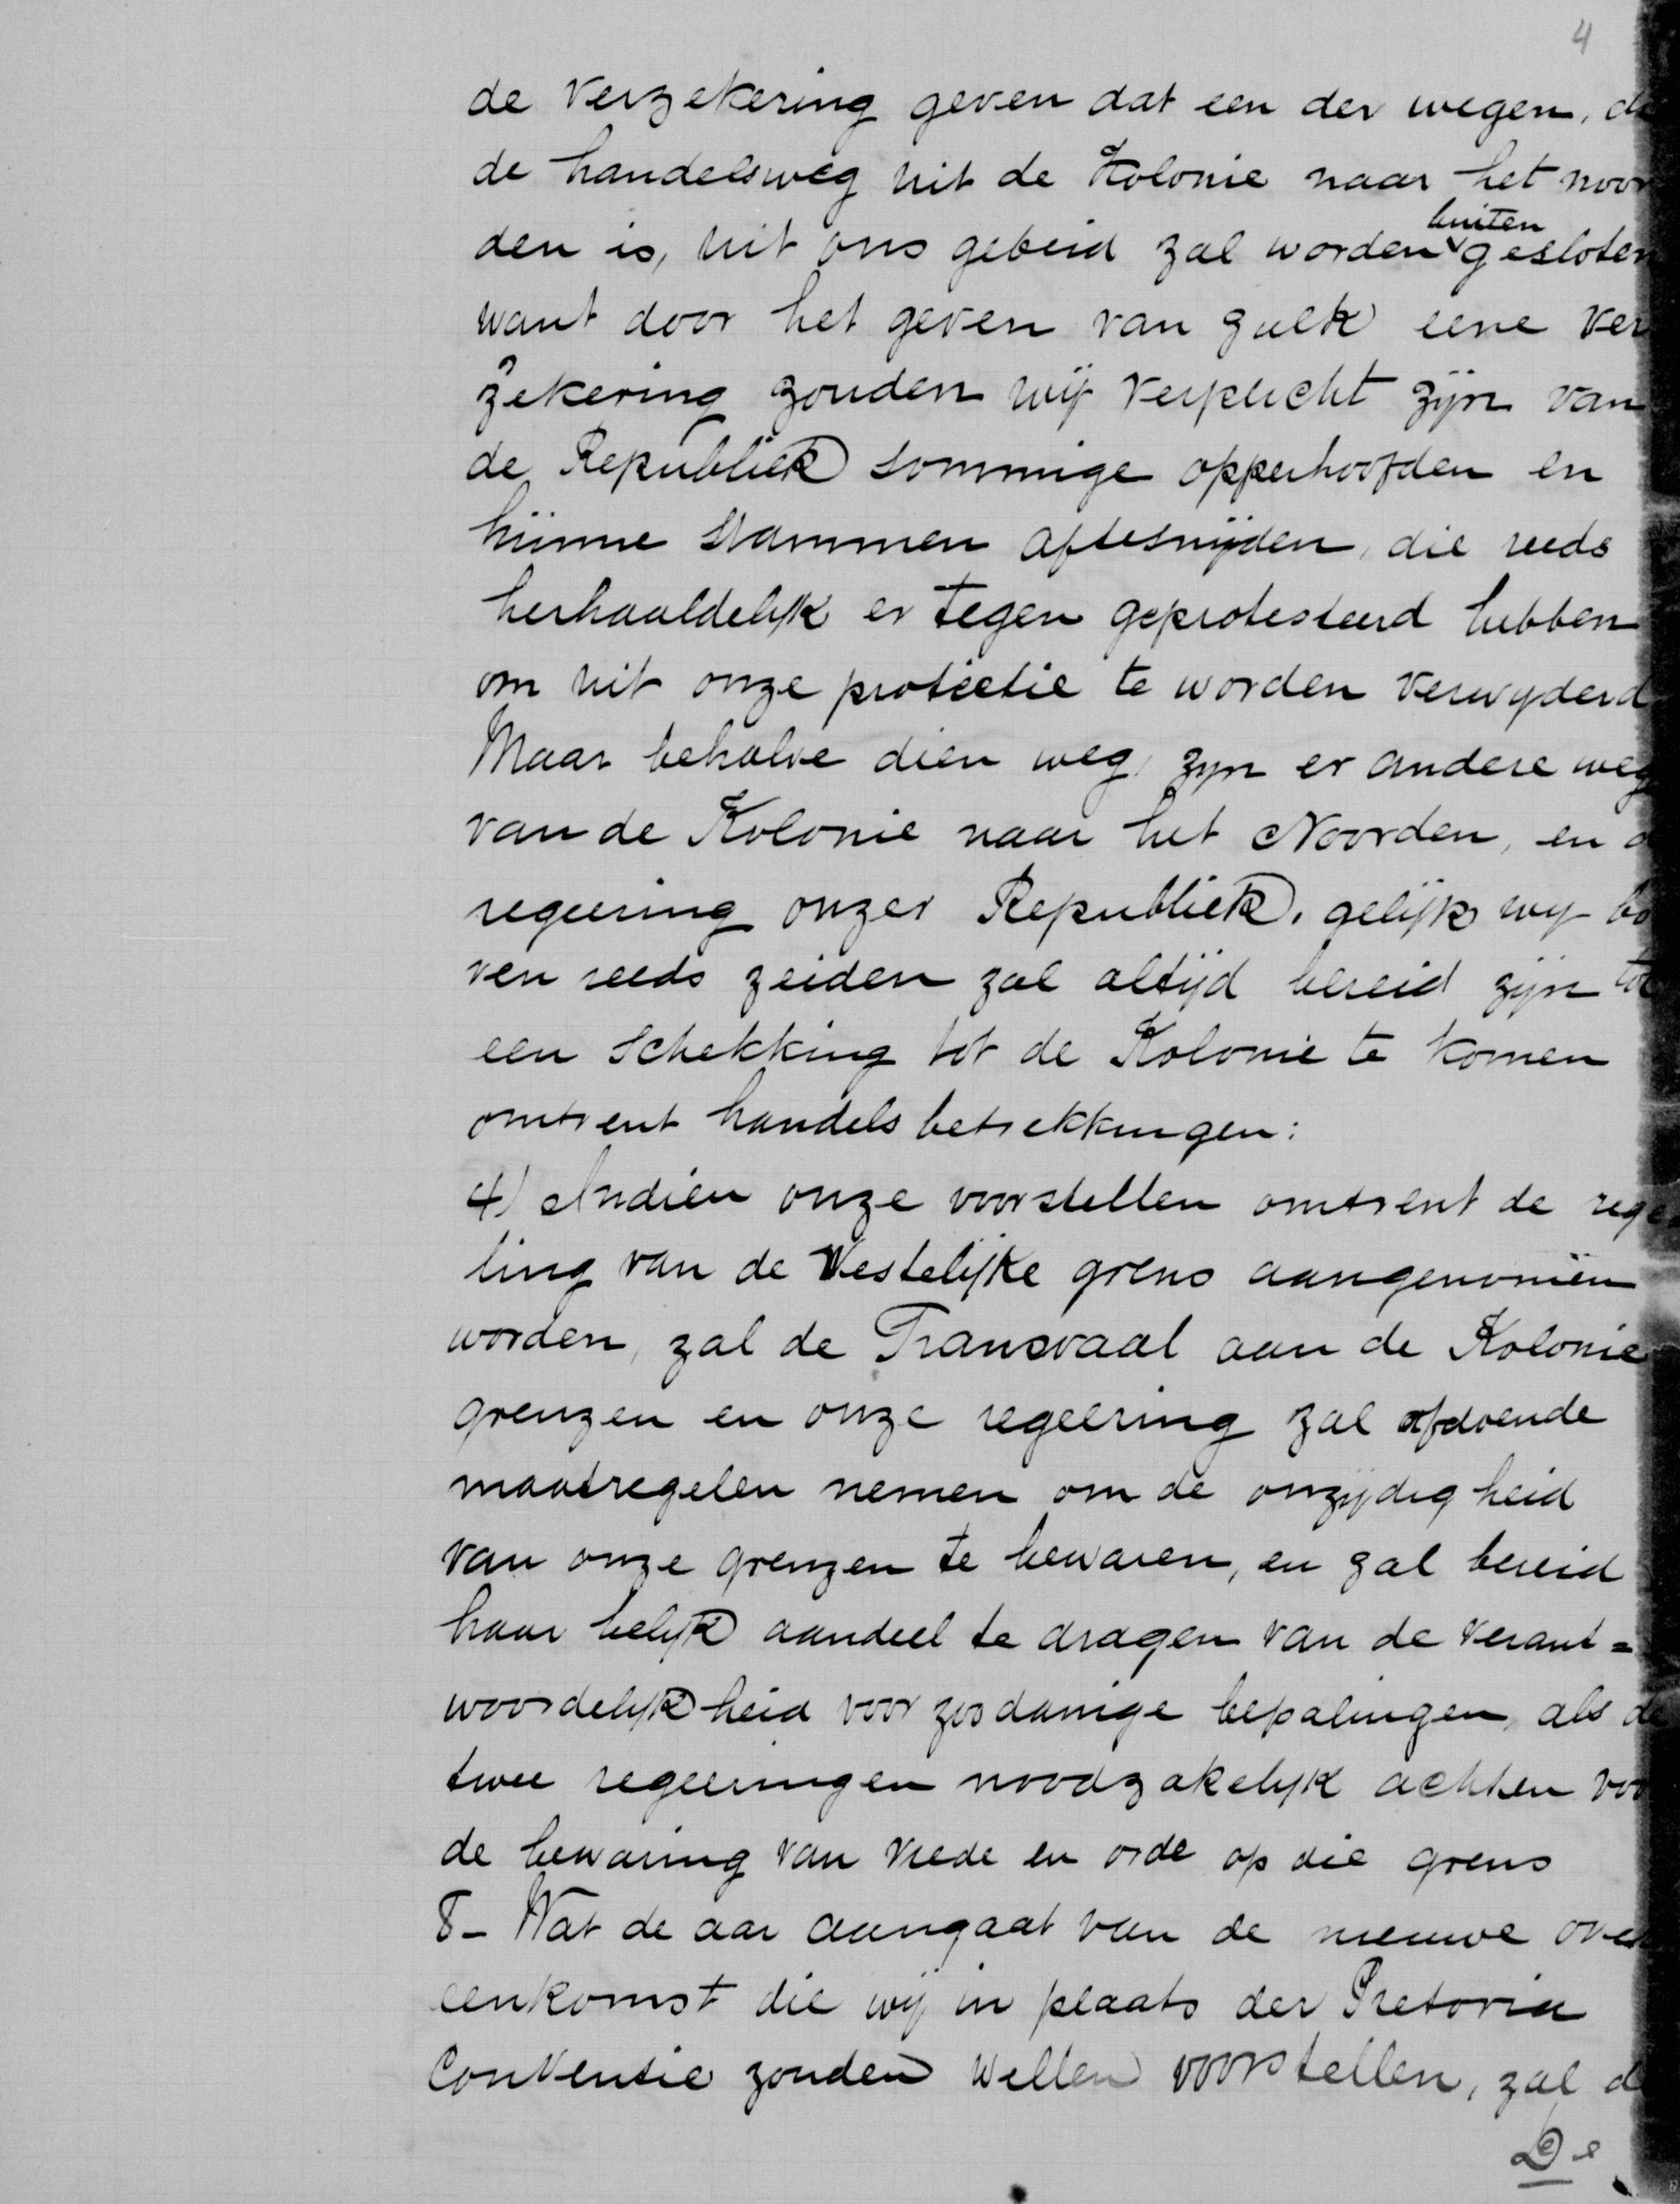 4
de Verzekering geven dat een der wegen, d
de handelsweg uit de Kolonie naar het noor
den is, uit ons gebeid zal worden buiten gesloten
want door het geven van zulk eene Ver
zekering zouden wij Verplicht zijn van
de Republiek sommige opperhoofden en
hunne Stammen aftesnijden, die reeds
herhaaldelijk er tegen geprotesteerd hebben
om uit onze protectie te worden Verwyderd
Maar behalve dien weg, zyn er andere weg
van de Kolonie naar het Noorden, en d
regeering onzer Republiek, gelijk wy bo
ven reeds zeiden zal altijd bereid zijn to
een Schekking tot de Kolonie te komen
omtrent handels betrekkingen:
4) Indien onze voorstellen omtrent de rege
ling van de Westelijke grens aangenomen
worden, zal de Transvaal aan de Kolonie
grenzen en onze regeering zal afdoende
maatregelen nemen om de onzijdig heid
van onze grenzen te bewaren, en zal bereid
haar belijk aandeel te dragen van de Verant=
woordelijk heid voor zoodanige bepalingen, als de
twee regeeringen noodzakelyk achten voo
de bewaring van Vrede en orde op die grens
8- Wat de aar aangaat van de nieuwe over
eenkomst die wij in plaats der Pretoria
Conventie zouden Willen voorstellen, zal d
De